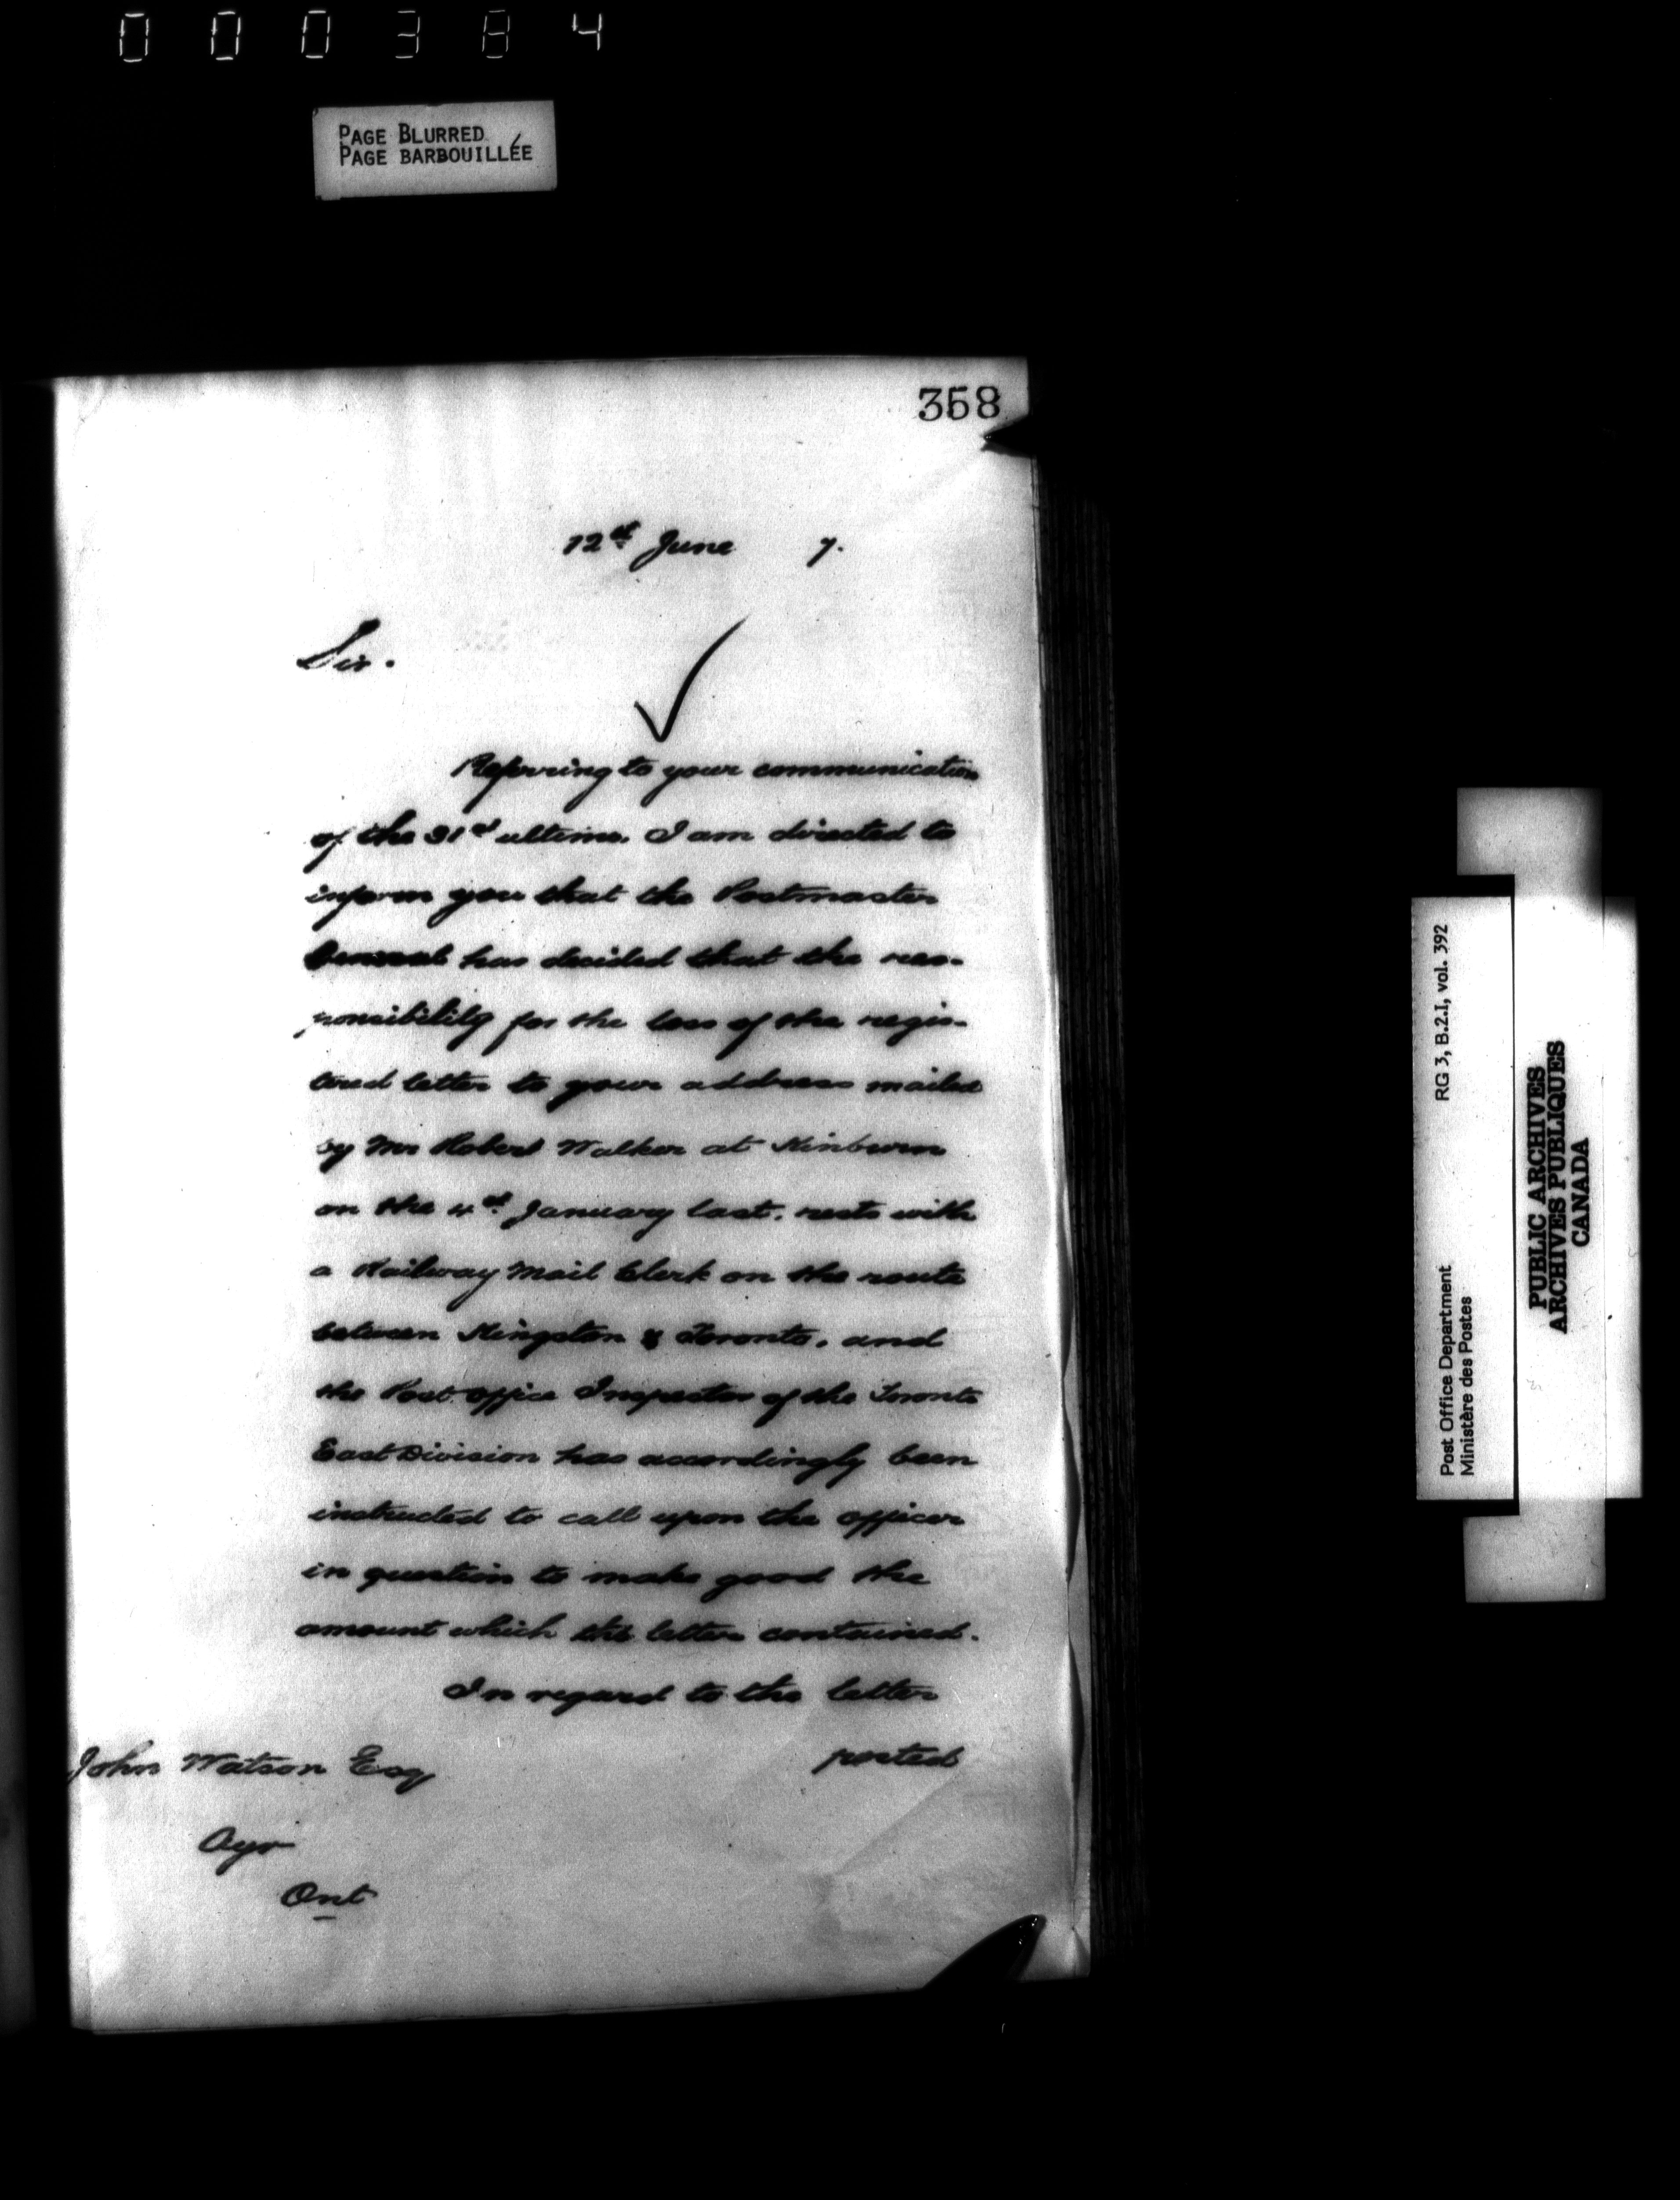 000384
PAGE BLURRED
PAGE BARBOUILLÉE
358
12th June 7.
Sir.
Referring to your communication
of the 31st ultimo, I am directed to
inform you that the Postmaster
General has decided that the res-
ponsibility for the loss of the regis-
tered letter to your address mailed
by Mr Robert Walker at Kinburn
on the 4th January last, rests with
a Railway Mail Clerk on the route
between Kingston & Toronto, and
the Post Office Inspector of the Toronto
East Division has accordingly been
instructed to call upon the officer
in question to make good the
amount which the letter contained.
In regard to the letter
posted
John Watson Esq
Ayr
Ont
Post Office Department RG 3, B.2.I, vol. 392
Ministère des Postes
PUBLIC ARCHIVES
ARCHIVES PUBLIQUES
CANADA